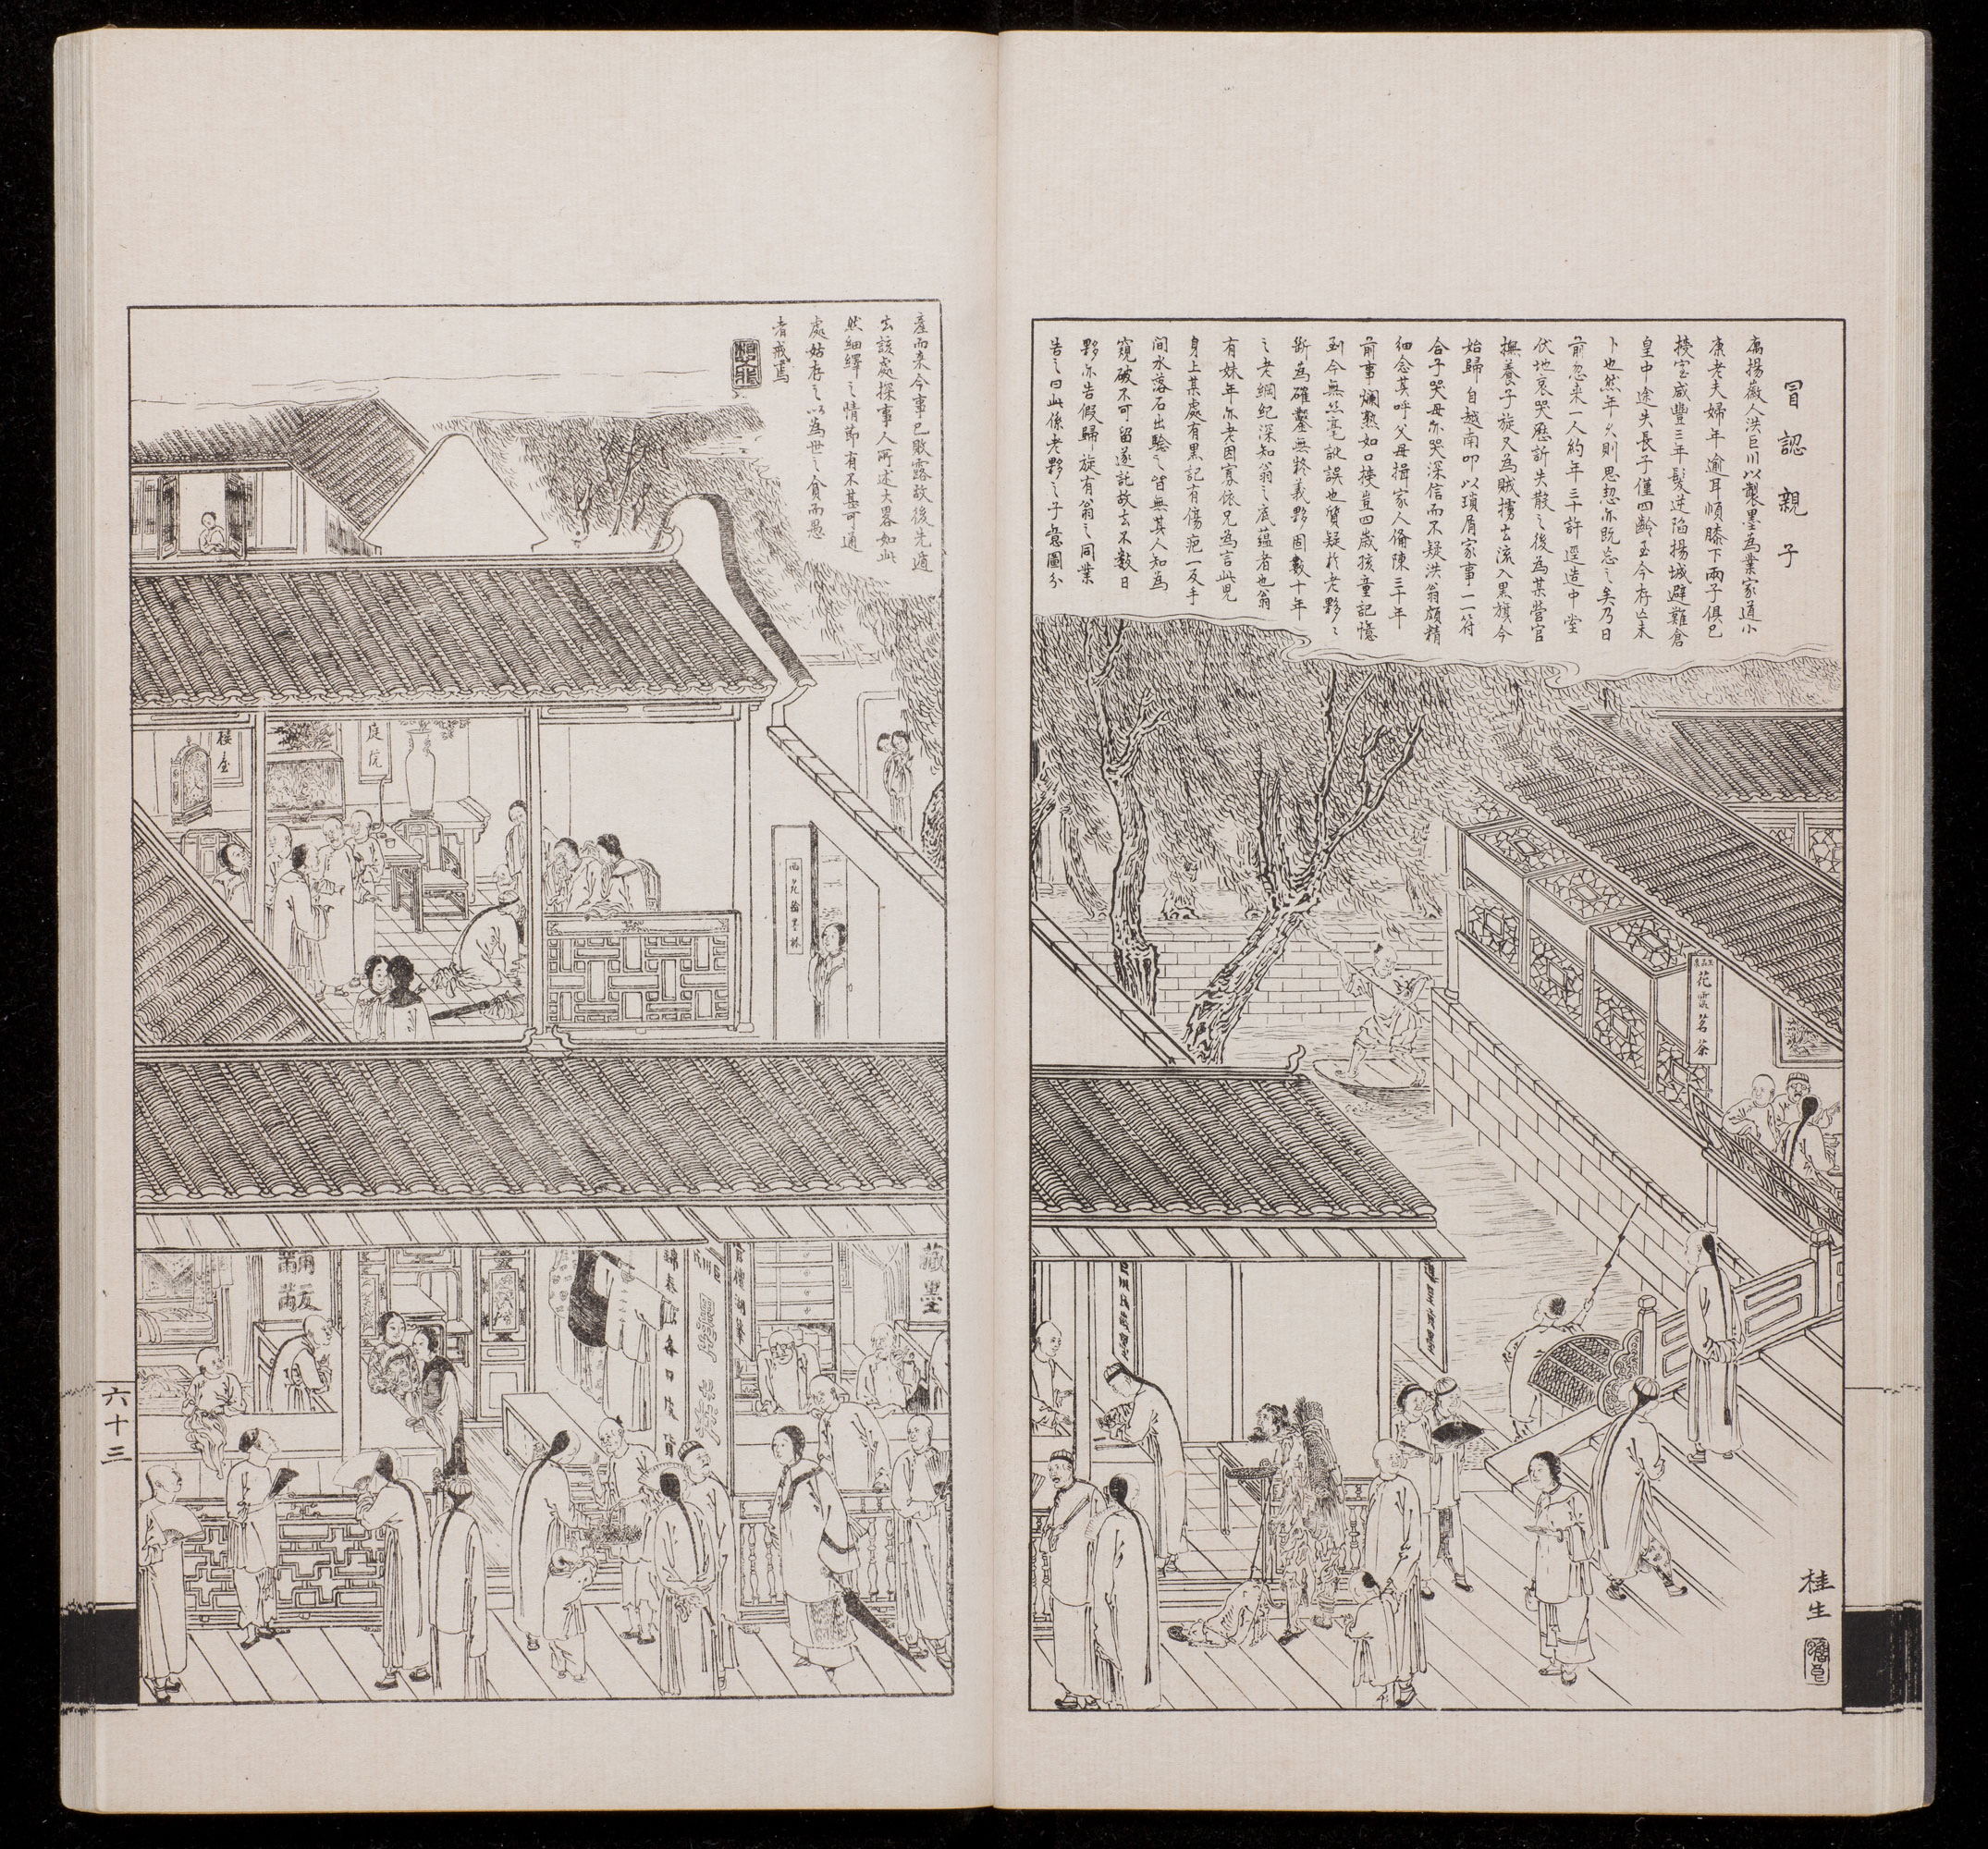 冒認親子
寓揚徽人洪巨川以製墨為業家道小
康老夫婦年逾耳順膝下兩子俱已
授室咸豐三年髮逆陷揚城避難倉
皇中途失長子僅四齡至今存亡未
卜也然年久則思恝亦既忘之矣乃日
前忽来一人約年三十許逕造中堂
伏地哀哭歷訴失散之後為某營官
撫養子旋又為賊擄去流入黑旗今
始歸自越南叩以瑣屑家事一一符
合子哭母亦哭深信而不疑洪翁頗精
細念其呼父母揖家人備陳三十年
前事爛熟如口授豈四歲孩童記憶
到今無絲毫訛誤也質疑於老夥之
斷為確鑿無疑義夥固數十年
之老綱紀深知翁之底蘊者也翁
有妹年亦老因寡依兄為言此児
身上某處有黑記有傷疤一反手
間水落石出驗之皆無其人知為
窺破不可留遂託故去不數日
夥亦告假歸旋有翁之同業
告之曰此係老夥之子意圖分
產而来今事已敗露故後先遁
去該處探事人所述大畧如此
然細繹之情節有不甚可通
處姑存之以為世之貪而愚
者戒焉
花雲茗茶
桂生
庭院
樓臺
西苑翰墨林
藏墨
黼黻
六十三